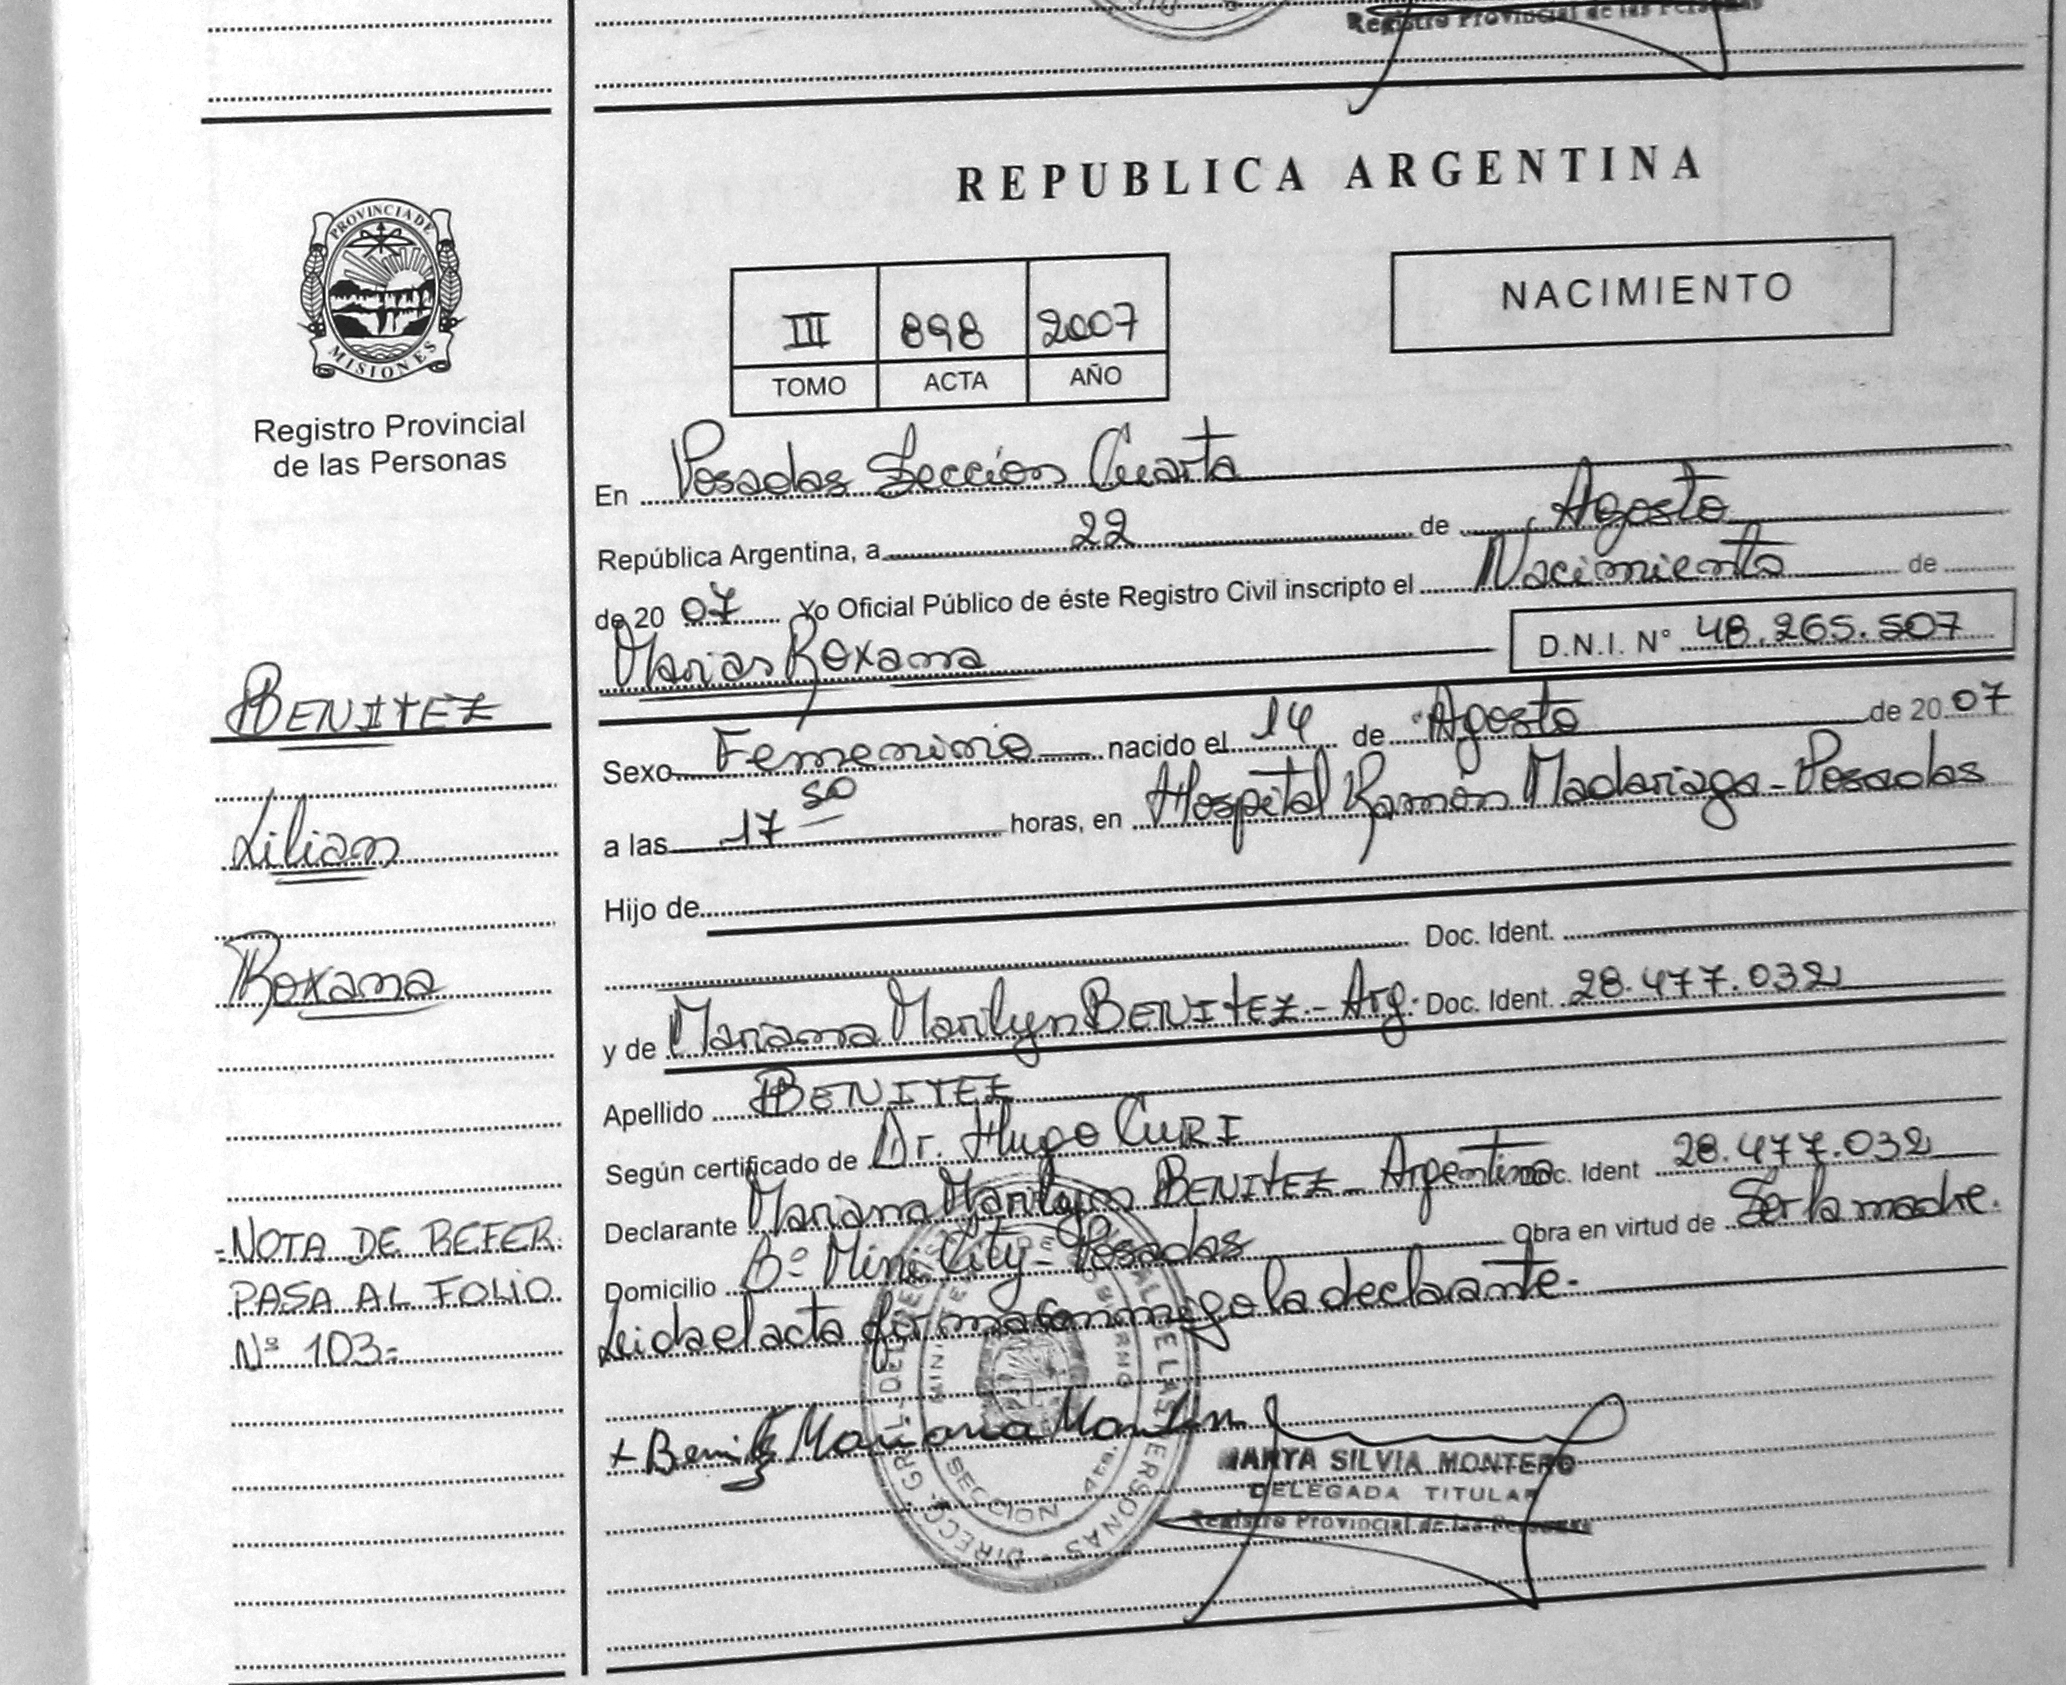 Registro Provincial de las Personas
PROVINCIA DE
MISIONES
Registro Provincial
de las Personas
REPUBLICA ARGENTINA
NACIMIENTO
III 898 2007
TOMO ACTA AÑO
En Posadas Sección Cuarta
República Argentina, a 22 de Agosto
de 20 07 Yo Oficial Público de éste Registro Civil inscripto el Nacimiento de
Roxana D.N.I. N° 48.265.507
Sexo Femenino nacido el 14 de Agosto de 20 07
a las 17 50 horas, en Hospital Ramón Madariaga - Posadas
Hijo de
Doc. Ident.
y de Mariana Marilyn BENITEZ - Arg. Doc. Ident. 28.477.032
Apellido BENITEZ
Según certificado de Dr. Hugo CURI
Declarante Mariana Marilyn BENITEZ - Argentina Doc. Ident 28.477.032
Domicilio B° Mini City - Posadas Obra en virtud de Ser la madre.
Leida el acta firma conmigo la declarante.-
BENITEZ
Lilian
Roxana
-NOTA DE REFER.
PASA AL FOLIO
N° 103-
+ Benitez Mariana
MARTA SILVIA MONTERO
DELEGADA TITULAR
Registro Provincial de las Personas
SECCION 4ta.